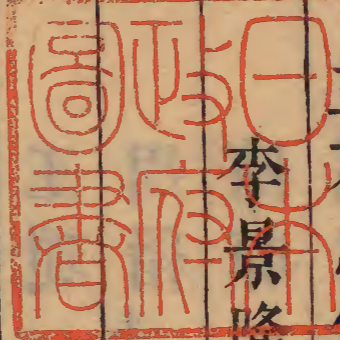 日本
政府
圖書
李景隆